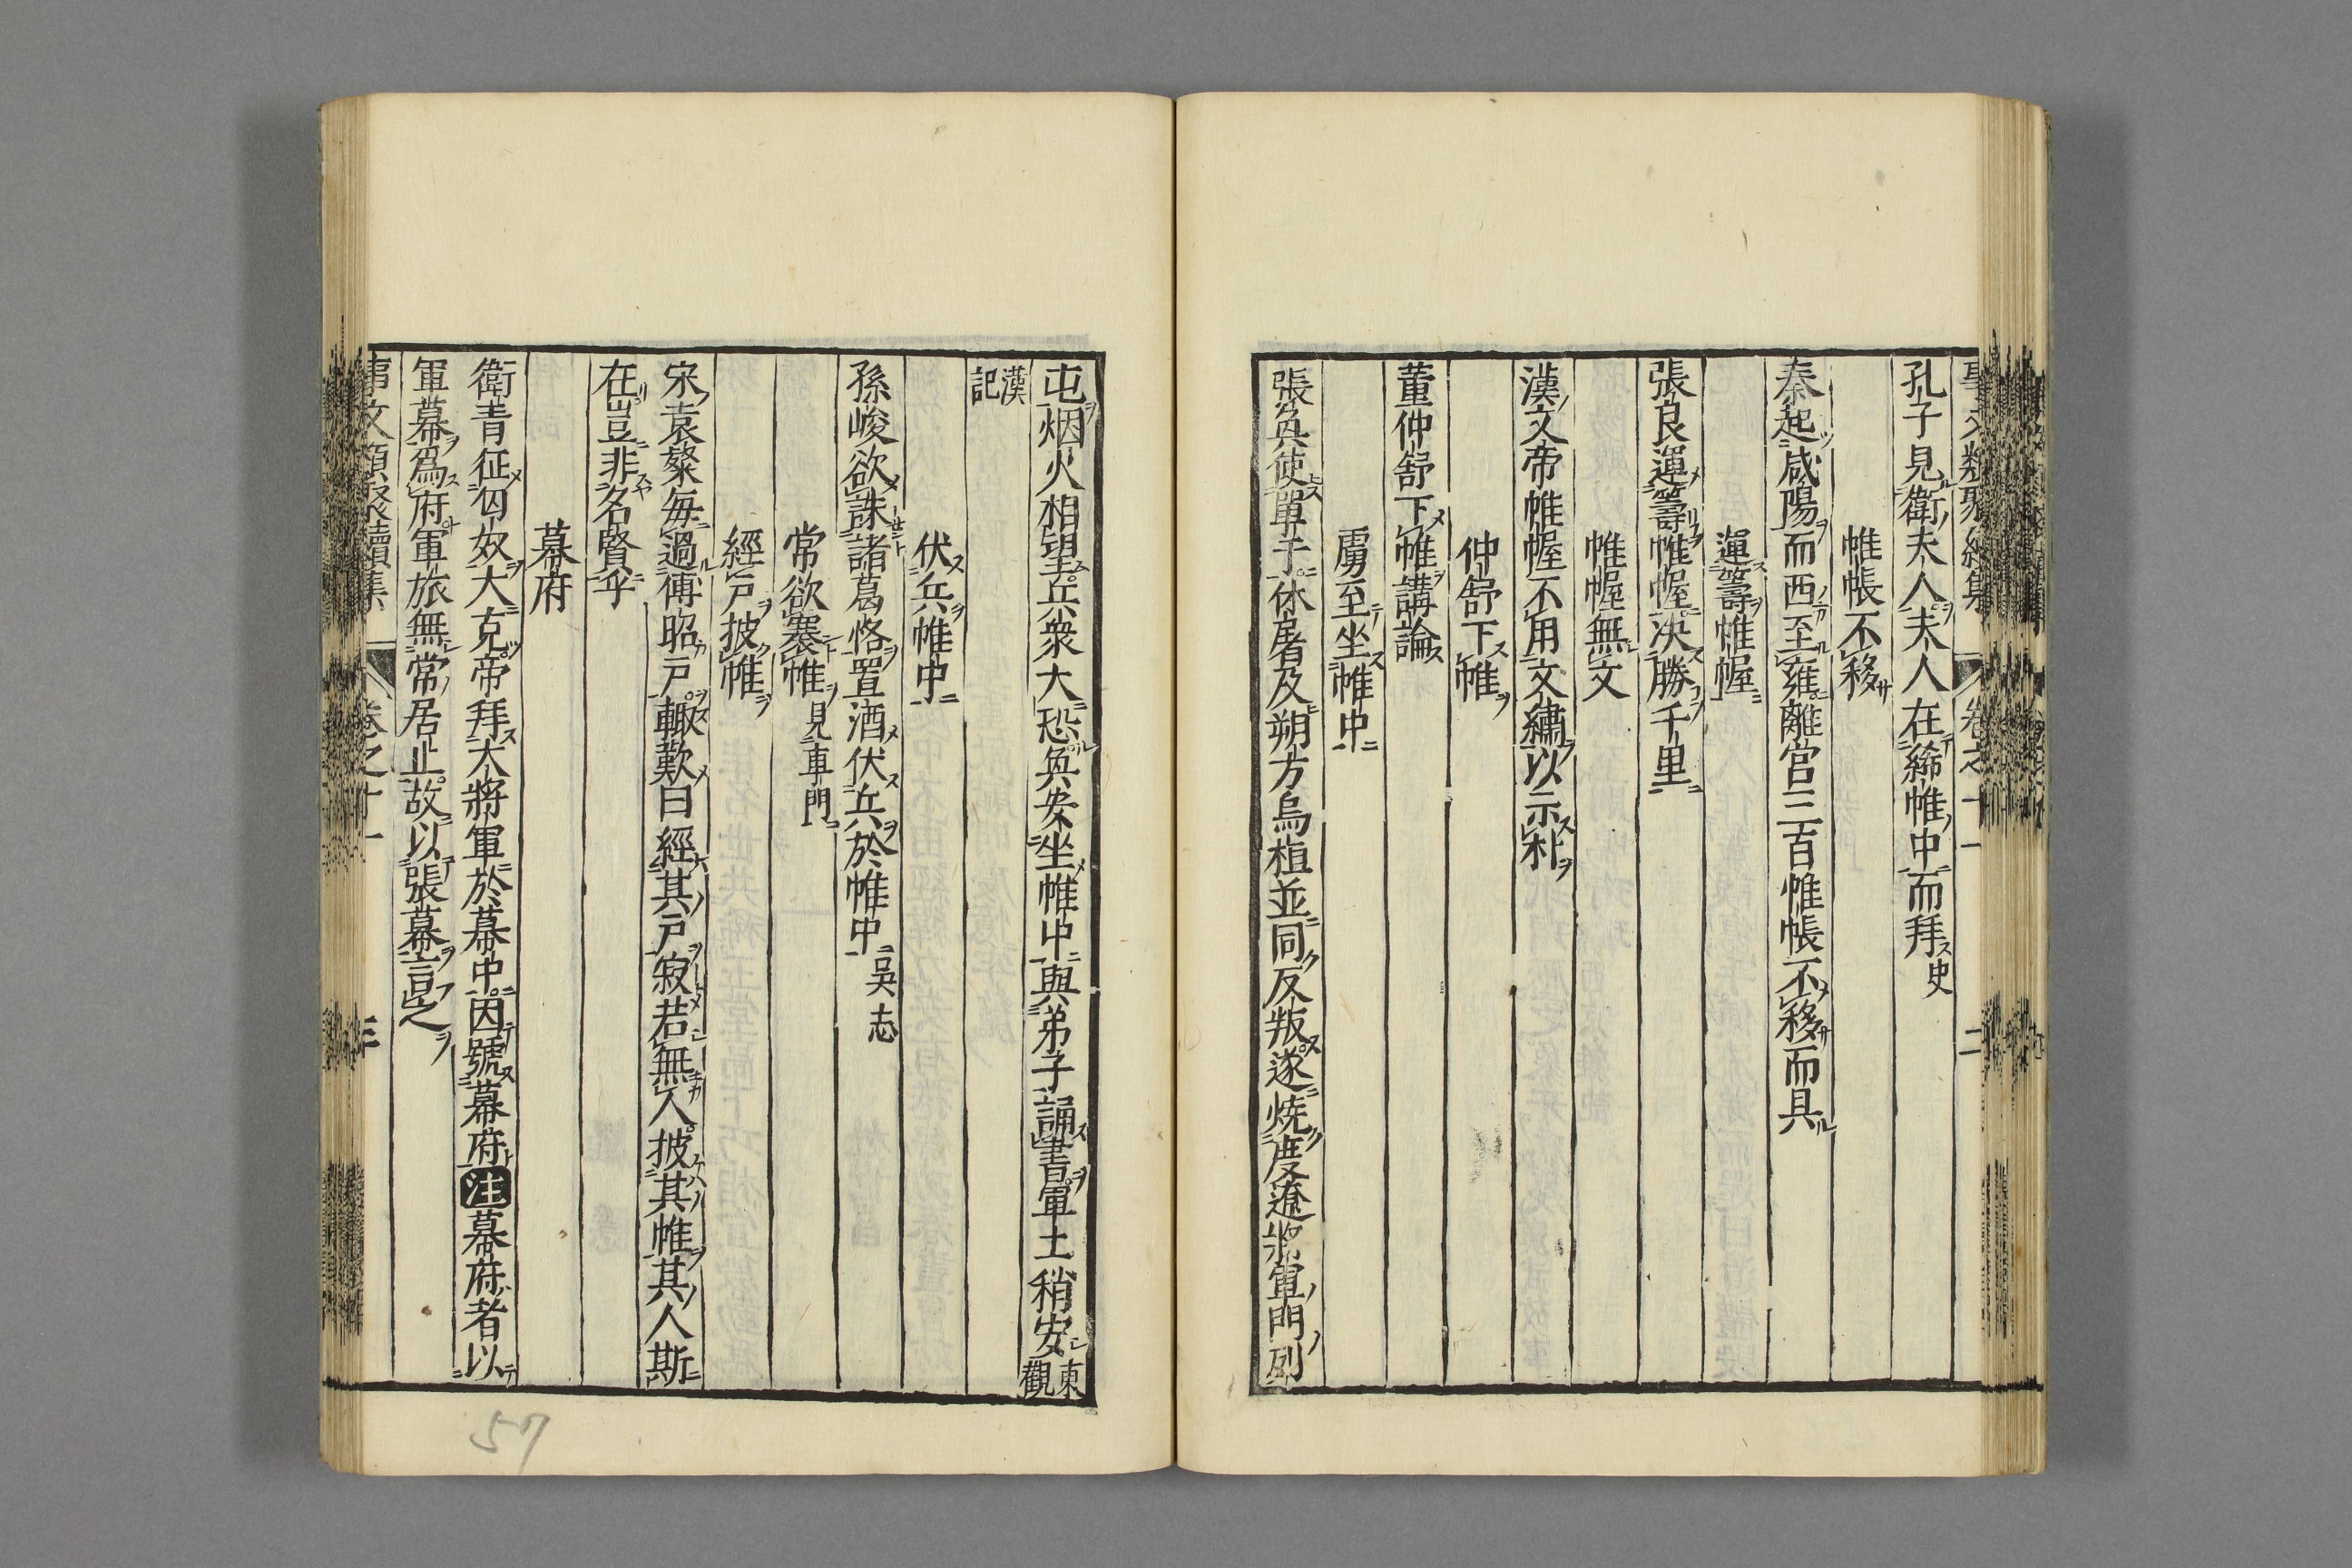 事文類聚續集 卷之十一 二
孔子見衛夫人夫人在絺帷中而拜史
帷帳不移
秦起咸陽而西至雍離宮三百帷帳不移而具
運籌帷幄
張良運籌帷幄決勝千里
帷幄無文
漢文帝帷幄不用文繡以示朴
仲舒下帷
董仲舒下帷講論
虜至坐帷中
張奐使單于休屠及朔方烏桓並同反叛遂燒度遼將軍門列
屯烟火相望兵衆大恐奐安坐帷中與弟子誦書軍士稍安東觀
漢記
伏兵帷中
孫峻欲誅諸葛恪置酒伏兵於帷中吳志
常欲褰帷見車門
經戶披帷
宋袁粲每過傅昭戶輙歎曰經其戶寂若無人披其帷其人斯
在豈非名賢乎
幕府
衛青征匈奴大克帝拜大將軍於幕中因號幕府注幕府者以
軍幕爲府軍旅無常居止故以張幕言之
事文類聚續集 卷之十一 三
57